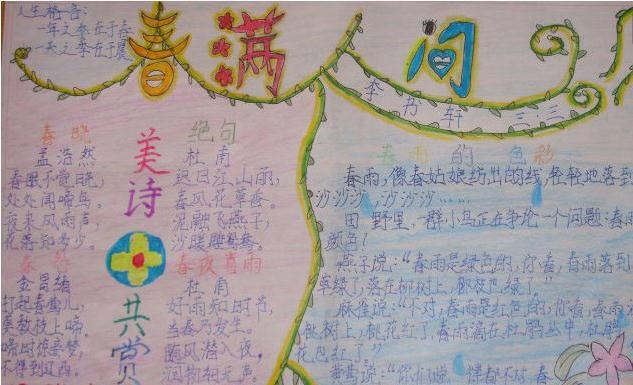 人生格言:
一年之季在于春
一天之季在于晨
春满人间
李书轩 三·三
春晓
孟浩然
春眠不觉晓,
处处闻啼鸟。
夜来风雨声,
花落知多少。
春怨
金昌绪
打起黄莺儿,
莫教枝上啼。
啼时惊妾梦,
不得到辽西。
美诗共赏
绝句
杜甫
迟日江山丽,
春风花草香。
泥融飞燕子,
沙暖睡鸳鸯。
春夜喜雨
杜甫
好雨知时节,
当春乃发生。
随风潜入夜,
润物细无声。
春雨的色彩
春雨,像春姑娘纺出的线,轻轻地落到
沙沙沙,沙沙沙……
田野里,一群小鸟正在争论一个问题:春雨
颜色?
燕子说:“春雨是绿色的,你看,春雨落到
草绿了,落在柳树上,柳枝也绿了”
麻雀说:“不对,春雨是红色的,你看,春雨
桃树上,桃花红了,春雨滴在杜鹃丛中,杜鹃
花也红了”
黄莺说:“你们 不对,春